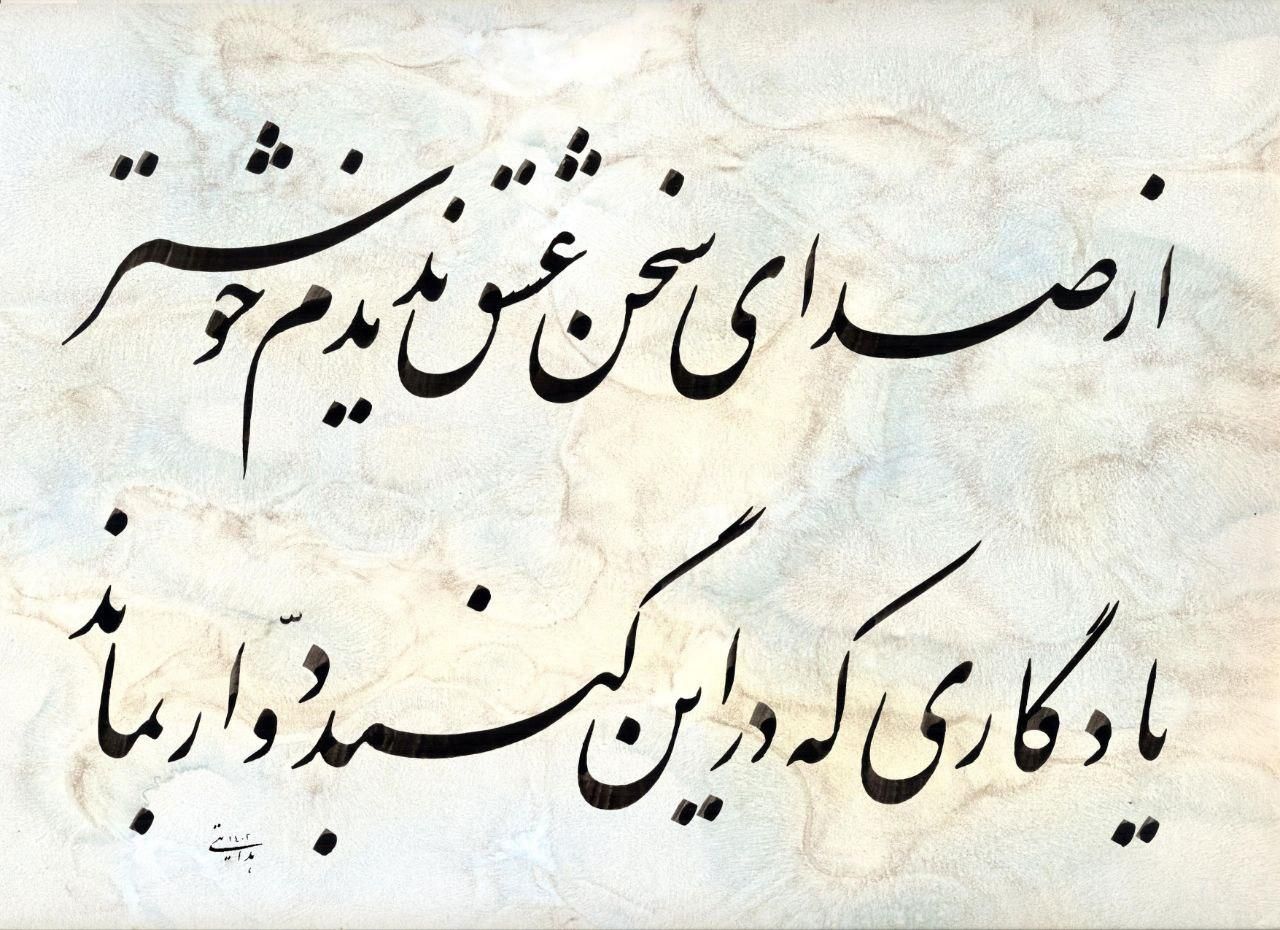 از صدای سخن عشق ندیدم خوشتر
یادگاری که در این گنبد دوّار بماند
هدایتی ۱٤۰۲